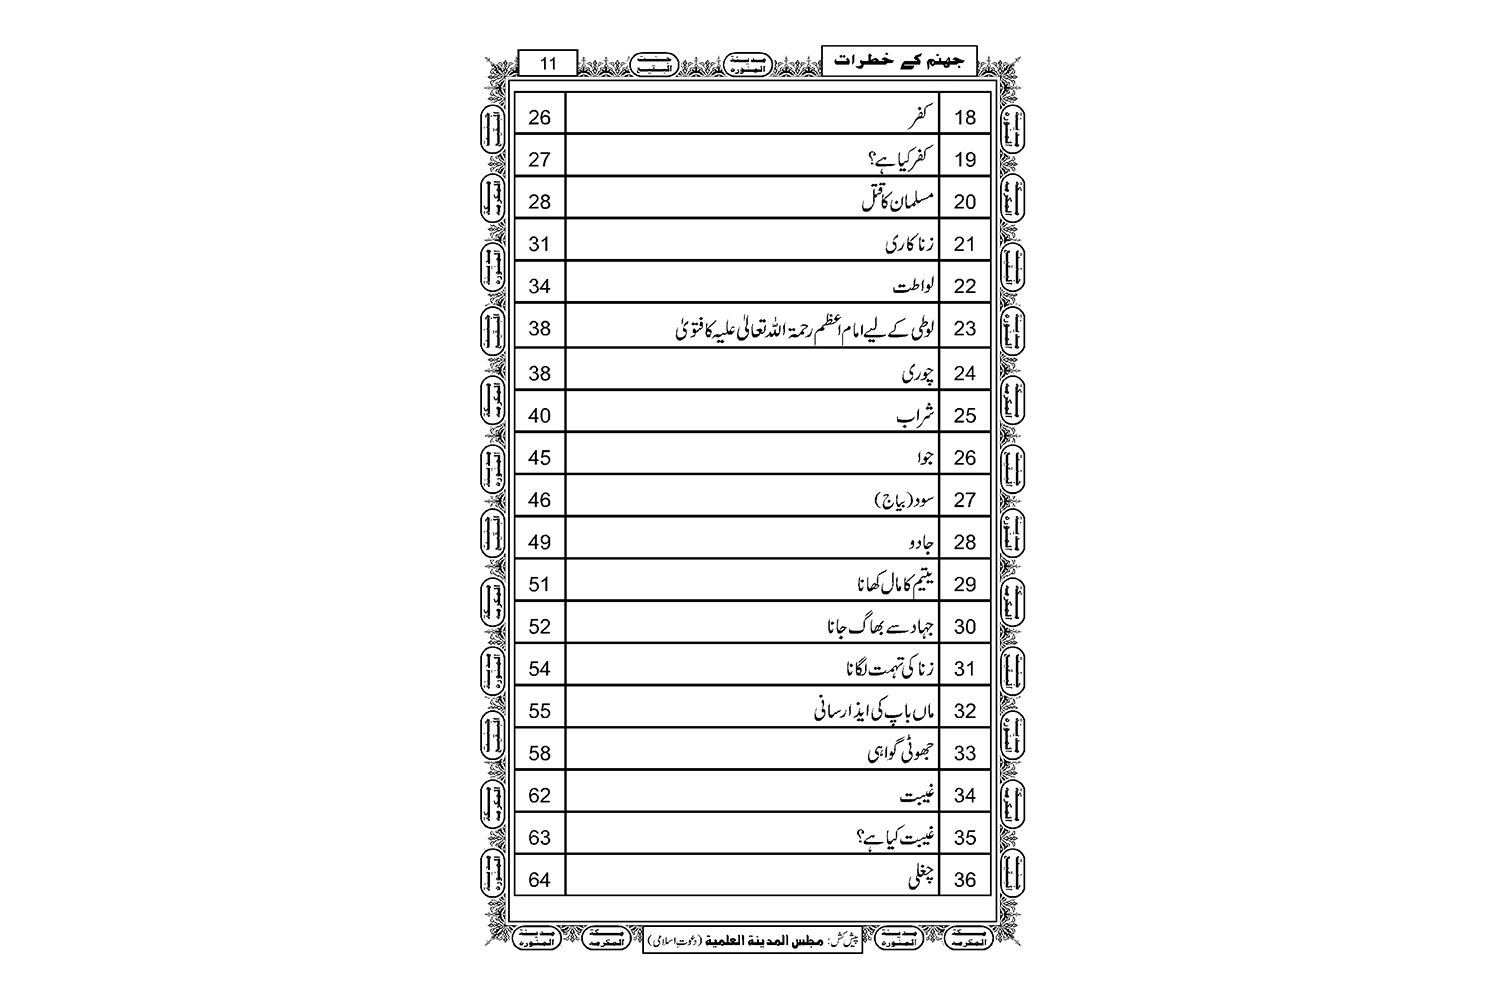 جهنم کے خطرات
مدينة المنوره
جنت البقيع
11
18 کفر 26
19 کفر کیا ہے؟ 27
20 مسلمان کا قتل 28
21 زناکاری 31
22 لواطت 34
23 لوطی کے لیے امام اعظم رحمۃ اللہ تعالیٰ علیہ کا فتویٰ 38
24 چوری 38
25 شراب 40
26 جوا 45
27 سود (بیاج) 46
28 جادو 49
29 یتیم کا مال کھانا 51
30 جہاد سے بھاگ جانا 52
31 زنا کی تہمت لگانا 54
32 ماں باپ کی ایذا رسانی 55
33 جھوٹی گواہی 58
34 غیبت 62
35 غیبت کیا ہے؟ 63
36 چغلی 64
مكة المكرمه
مدينة المنوره
پیش کش: مجلس المدينة العلمية (دعوتِ اسلامی)
مكة المكرمه
مدينة المنوره